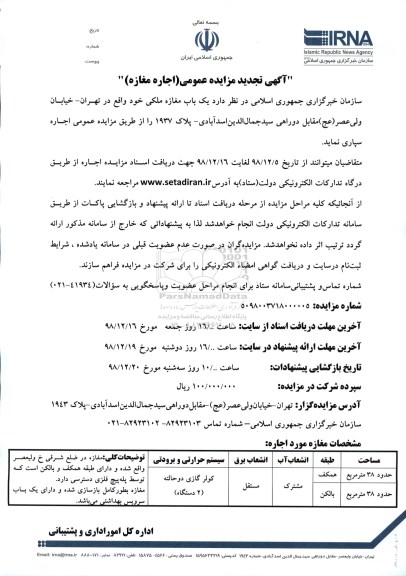 بسمه تعالی
جمهوری اسلامی ایران
IRNA
Islamic Republic News Agency
سازمان خبرگزاری جمهوری اسلامی
تاریخ
شماره
پیوست
"آگهی تجدید مزایده عمومی(اجاره مغازه)"
سازمان خبرگزاری جمهوری اسلامی در نظر دارد یک باب مغازه ملکی خود واقع در تهران- خیابان
ولی‌عصر(عج)مقابل دوراهی سیدجمال‌الدین‌اسدآبادی- پلاک ۱۹۳۷ را از طریق مزایده عمومی اجاره
سپاری نماید.
متقاضیان میتوانند از تاریخ ۹۸/۱۲/۵ لغایت ۹۸/۱۲/۱۶ جهت دریافت اسناد مزایده اجاره از طریق
درگاه تدارکات الکترونیکی دولت(ستاد)به آدرس www.setadiran.ir مراجعه نمایند.
از آنجائیکه کلیه مراحل مزایده از مرحله دریافت اسناد تا ارائه پیشنهاد و بازگشایی پاکات از طریق
سامانه تدارکات الکترونیکی دولت انجام خواهدشد لذا به پیشنهاداتی که خارج از سامانه مذکور ارائه
گردد ترتیب اثر داده نخواهدشد. مزایده‌گران در صورت عدم عضویت قبلی در سامانه یادشده ، شرایط
ثبت‌نام درسایت و دریافت گواهی امضاء الکترونیکی را برای شرکت در مزایده فراهم سازند.
شماره تماس و پشتیبانی‌سامانه ستاد برای انجام مراحل عضویت وپاسخگویی به سؤالات(۴۱۹۳۴-۰۲۱)
ParsNamadData
شماره مزایده: ۵۰۹۸۰۰۳۷۱۸۰۰۰۰۰۵
آخرین مهلت دریافت اسناد از سایت: ساعت ۱۶/۰۰ روز جمعه مورخ ۹۸/۱۲/۱۶
آخرین مهلت ارائه پیشنهاد در سایت: ساعت ۱۶/۰۰ روز دوشنبه مورخ ۹۸/۱۲/۱۹
تاریخ بازگشایی پیشنهادات: ساعت ۱۰/۰۰ روز سه‌شنبه مورخ ۹۸/۱۲/۲۰
سپرده شرکت در مزایده: ۱۰۰/۰۰۰/۰۰۰ ریال
آدرس مزایده‌گزار: تهران-خیابان‌ولی‌عصر(عج)-مقابل‌دوراهی‌سیدجمال‌الدین‌اسدآبادی-پلاک ۱۹۴۳
سازمان خبرگزاری جمهوری اسلامی- شماره تماس ۸۲۹۲۳۱۰۳- ۸۲۹۲۳۱۰۲-۰۲۱
مشخصات مغازه مورد اجاره:
مساحت طبقه انشعاب‌آب انشعاب برق سیستم حرارتی و برودتی
حدود ۳۸ مترمربع همکف مشترک مستقل کولر گازی دوحالته (۲ دستگاه)
حدود ۳۸ مترمربع بالکن
توضیحات‌کلی:مغازه در ضلع شرقی خ ولیعصر
واقع شده و دارای طبقه همکف و بالکن است که
توسط پله‌پیچ فلزی دسترسی دارد.
مغازه بطورکامل بازسازی شده و دارای یک باب
سرویس بهداشتی می‌باشد.
اداره کل اموراداری و پشتیبانی